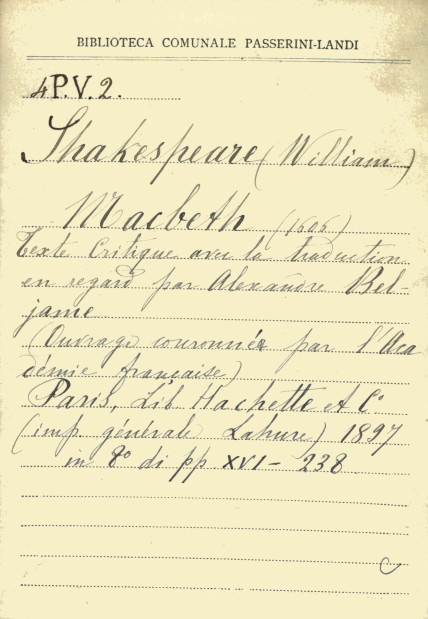 BIBLIOTECA COMUNALE PASSERINI-LANDI
4P.V.2.
Shakespeare (William)
Macbeth (1606)
Texte Critique avec la traduction
en regard par Alexandre Bel-
jame
(Ouvrage couronnée par l'Aca
démie française)
Paris, Lib Hachette et Cº
(imp générale Lahure) 1897
in 8º di pp XVI - 238
C